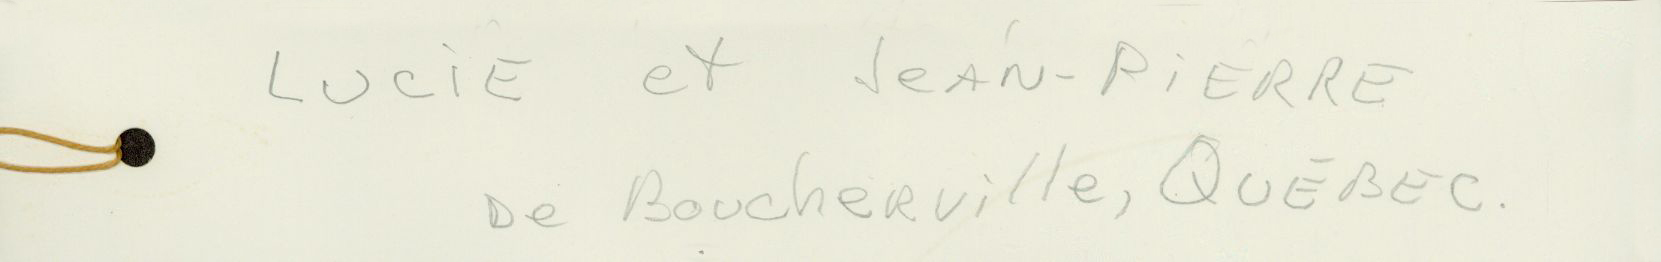 LUCIE et JEAN-PIERRE
De Boucherville, QUÉBEC.